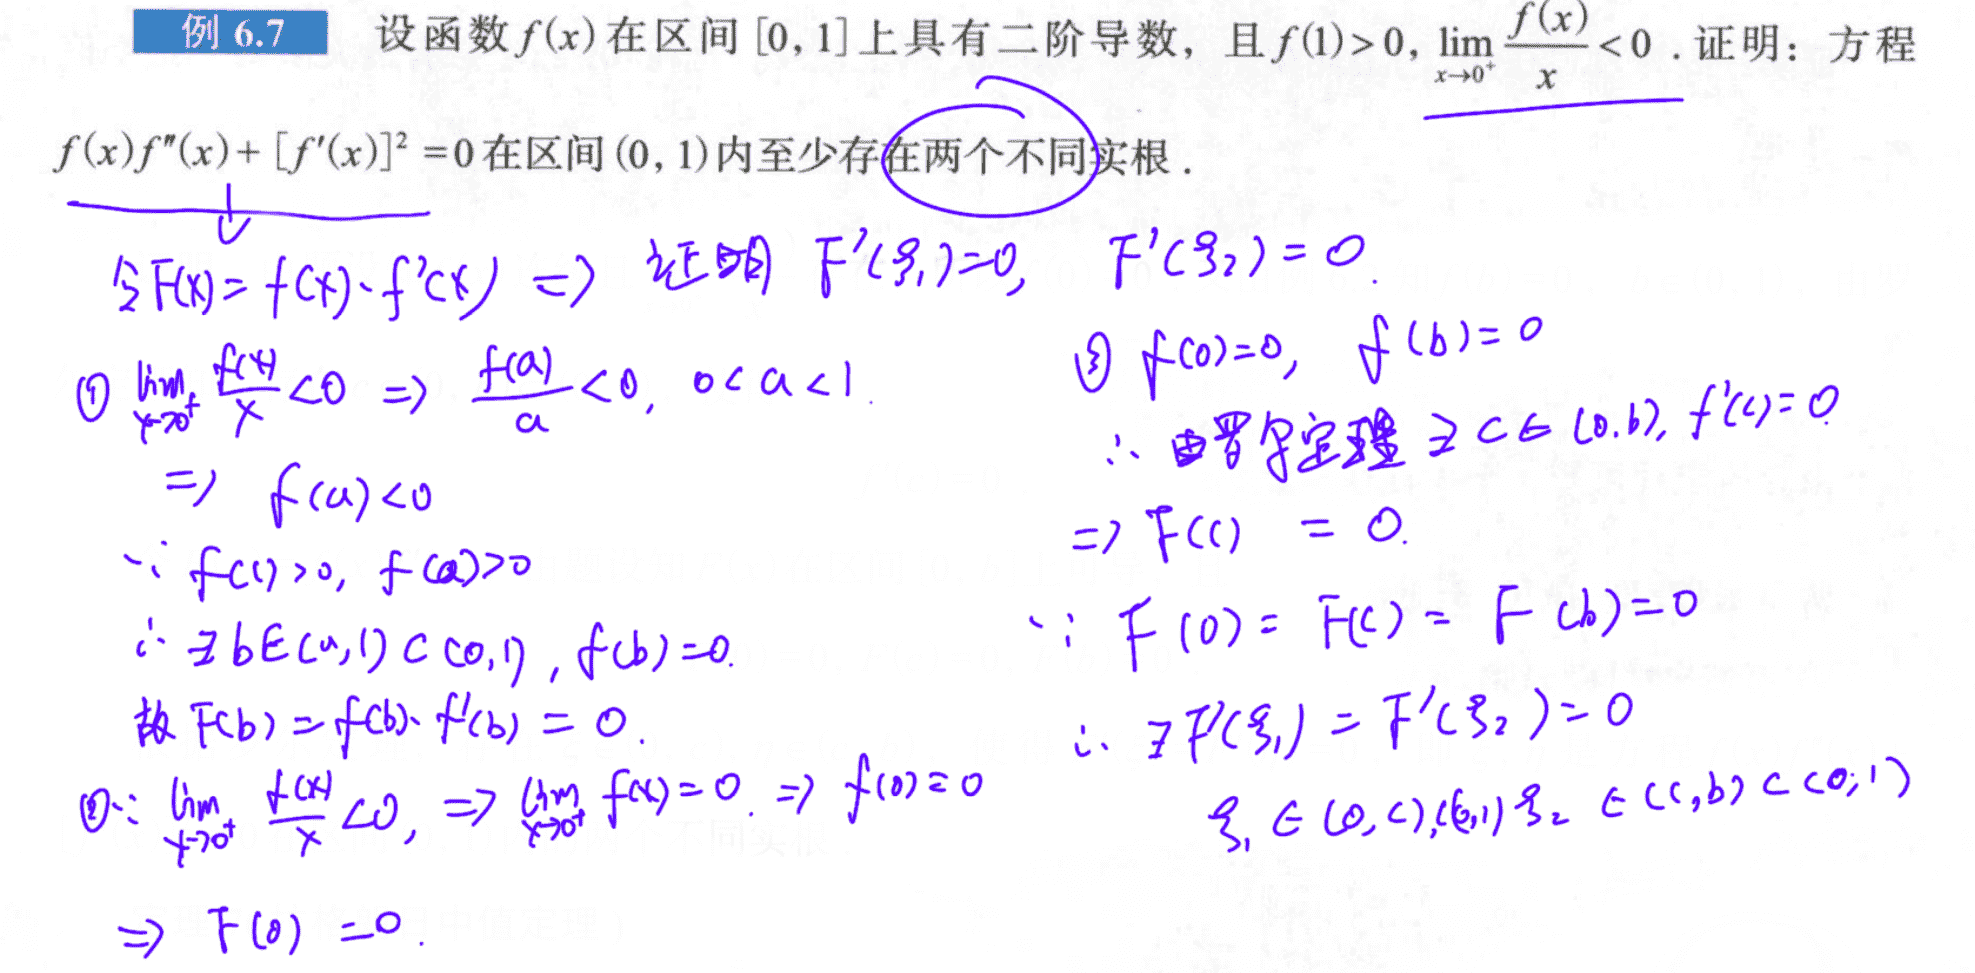 例 6.7 设函数 f(x) 在区间 [0, 1] 上具有二阶导数, 且 f(1)>0, lim_{x→0⁺} f(x)/x <0 . 证明: 方程
f(x)f″(x)+[f′(x)]²=0 在区间 (0, 1) 内至少存在两个不同实根 .
令F(x)= f(x)·f′(x) => 证明 F′(ξ₁)=0, F′(ξ₂)=0.
① lim_{x→0⁺} f(x)/x <0 => f(a)/a <0, 0<a<1.
=> f(a)<0
∵ f(1)>0, f(a)>0
∴ ∃ b∈(a,1)⊂(0,1), f(b)=0.
故 F(b)=f(b)·f′(b)=0.
②∵ lim_{x→0⁺} f(x)/x <0, => lim_{x→0⁺} f(x)=0. => f(0)=0
=> F(0)=0.
③ f(0)=0, f(b)=0
∴ 由罗尔定理 ∃ c∈(0,b), f′(c)=0.
=> F(c) = 0.
∵ F(0)= F(c)= F(b)=0
∴ ∃ F′(ξ₁)=F′(ξ₂)=0
ξ₁∈(0,c), ξ₂∈(c,b)⊂(0,1)